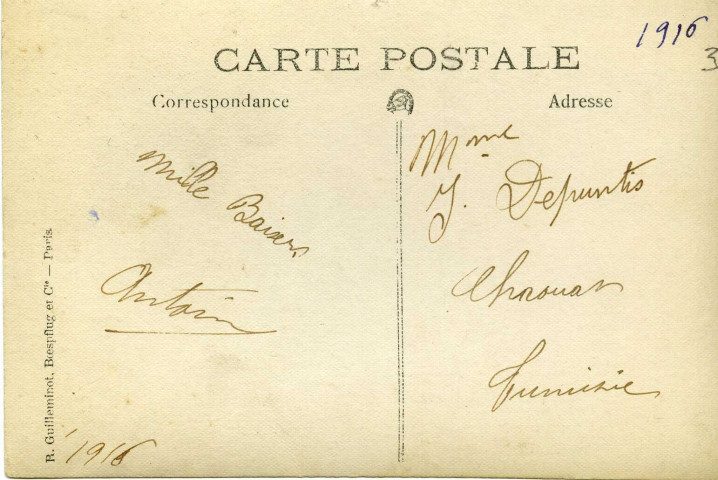 1916
3
CARTE POSTALE
Correspondance
Adresse
Mille Baisers
Antoine
1916
Mme
J. Depuntis
Chaouat
Tunisie
R. Guilleminot, Bœspflug et Cie — Paris